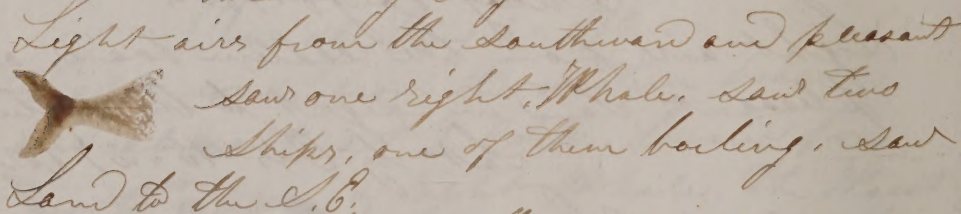 Light airs from the southward and pleasant
saw one right Whale. saw two
Ships, one of them boiling. saw
Land to the S.E.